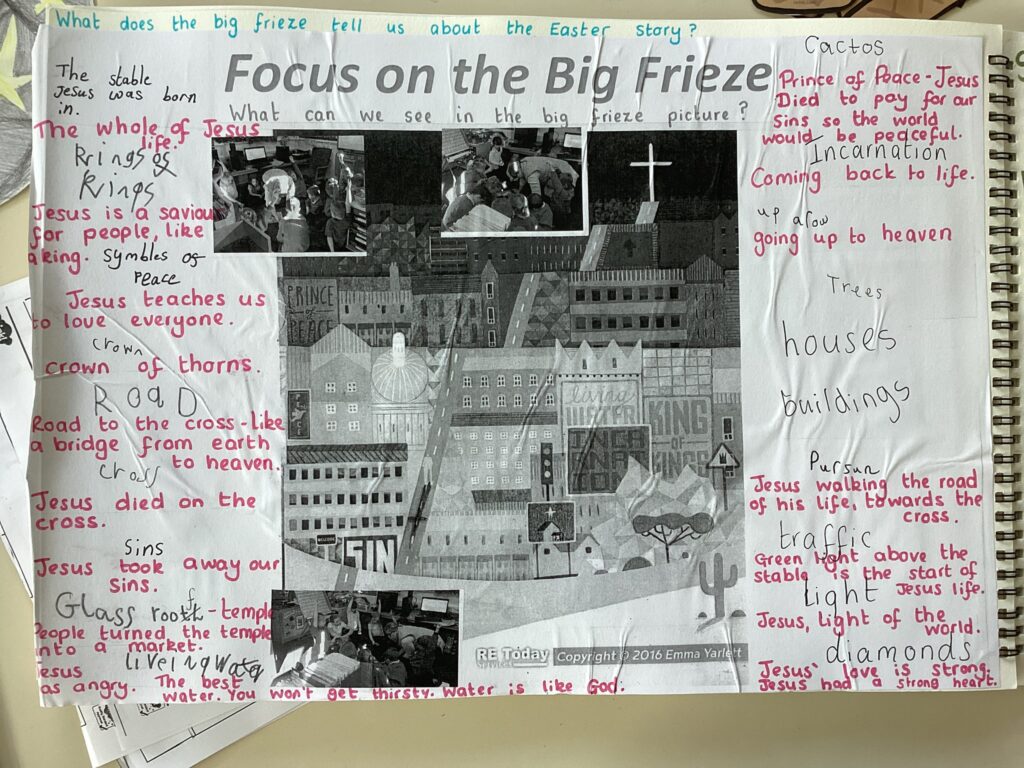 What does the big frieze tell us about the Easter story?
Focus on the Big Frieze
What can we see in the big frieze picture?
The stable
Jesus was born
in.
The whole of Jesus
life.
Krings of
Krings
Jesus is a saviour
for people, like
a king.
Symbles of
Peace
Jesus teaches us
to love everyone.
crown
crown of thorns.
Road
Road to the cross-like
a bridge from earth
to heaven.
cross
Jesus died on the
cross.
Sins
Jesus took away our
Sins.
Glass roof - temple
People turned the temple
into a market.
Jesus
was angry.
Liveing water
The best
water. You won't get thirsty. Water is like God.
PRINCE
OF
PEACE
living
WATER
KING
OF
KINGS
INCA
RNAT
ION
SIN
RE Today
SERVICES
Copyright © 2016 Emma Yarlett
Cactos
Prince of Peace - Jesus
Died to pay for our
Sins so the world
would be peaceful.
Incarnation
Coming back to life.
up arow
going up to heaven
Trees
houses
buildings
Pursun
Jesus walking the road
of his life, towards the
cross.
traffic
Light
Green light above the
stable is the start of
Jesus life.
Jesus, light of the
world.
diamonds
Jesus' love is strong.
Jesus had a strong heart.